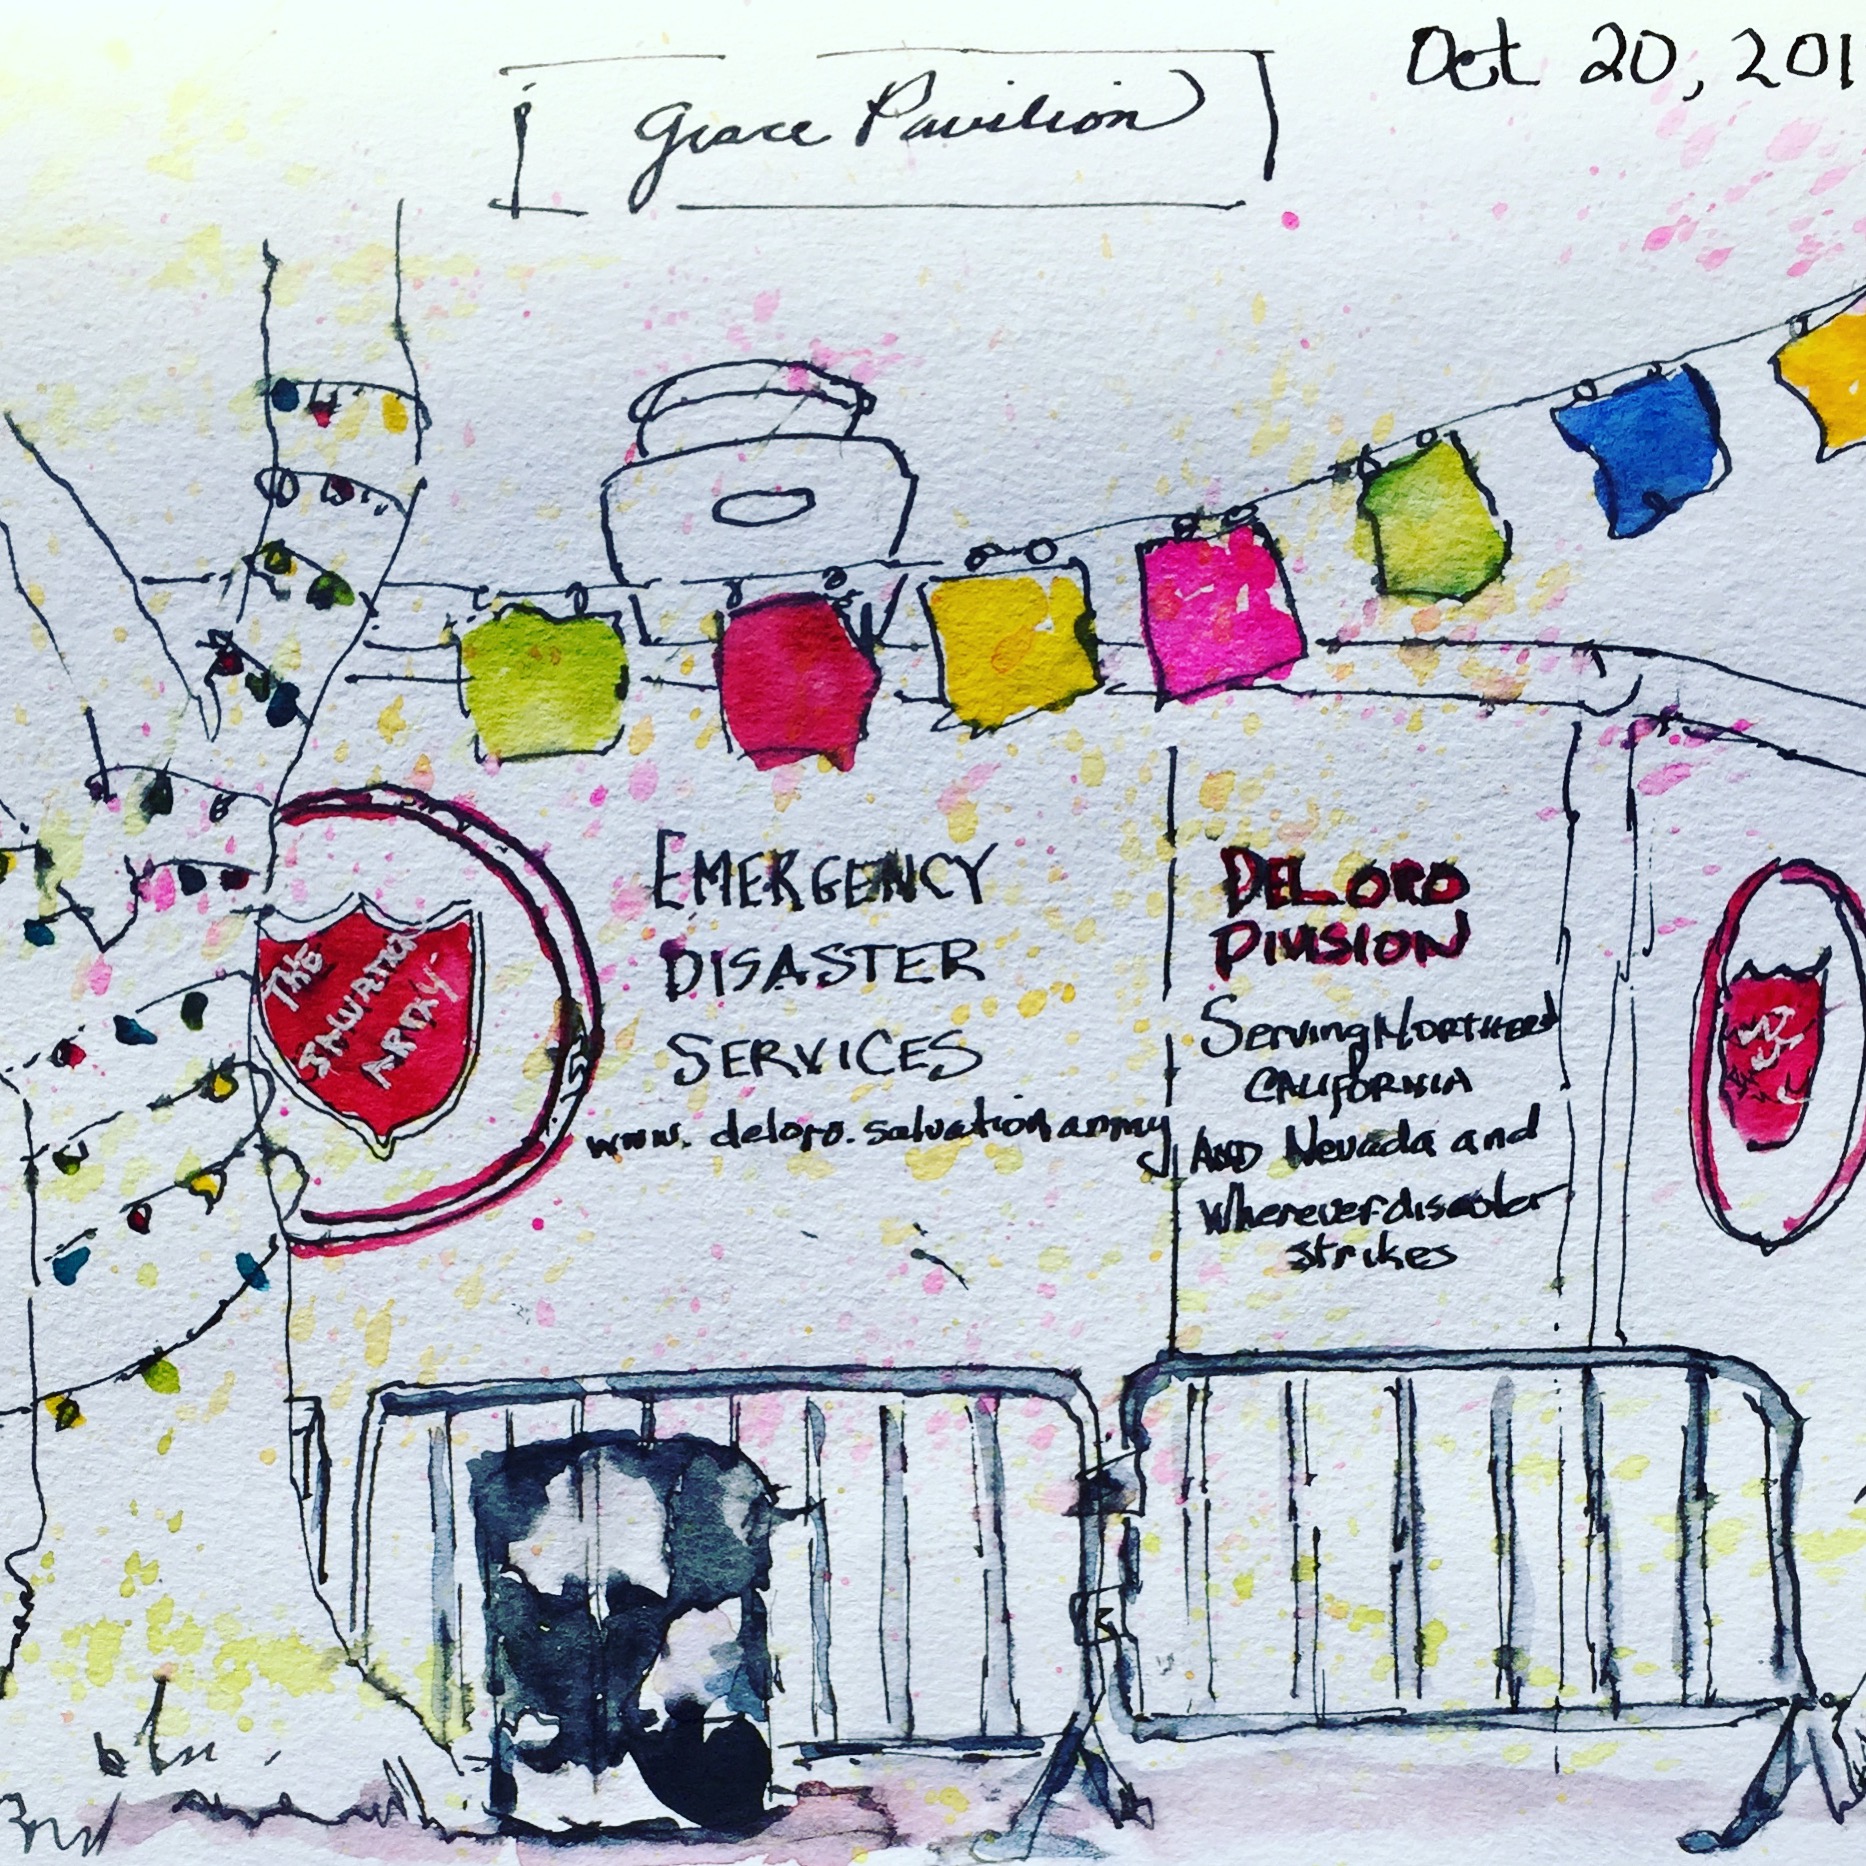 Oct 20, 201
Grace Pavilion
THE
SALVATION
ARMY
EMERGENCY
DISASTER
SERVICES
www.deloro.salvationarmy
DEL ORO
DIVISION
Serving NORTHERN
CALIFORNIA
AND Nevada and
Wherever disaster
strikes